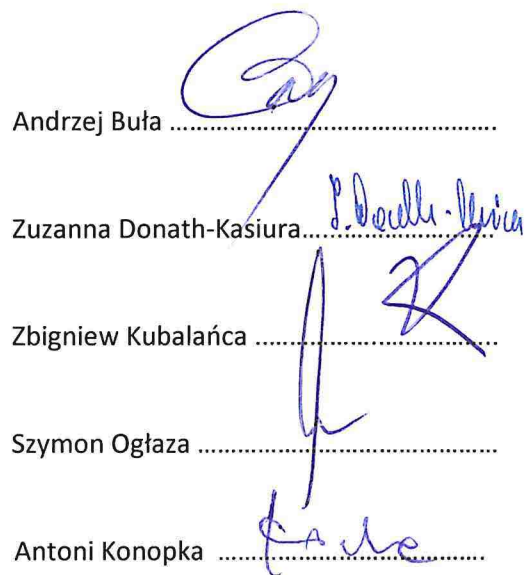 Andrzej Buła ................................................
Zuzanna Donath-Kasiura................................
Zbigniew Kubalańca ......................................
Szymon Ogłaza ..............................................
Antoni Konopka ..........................................